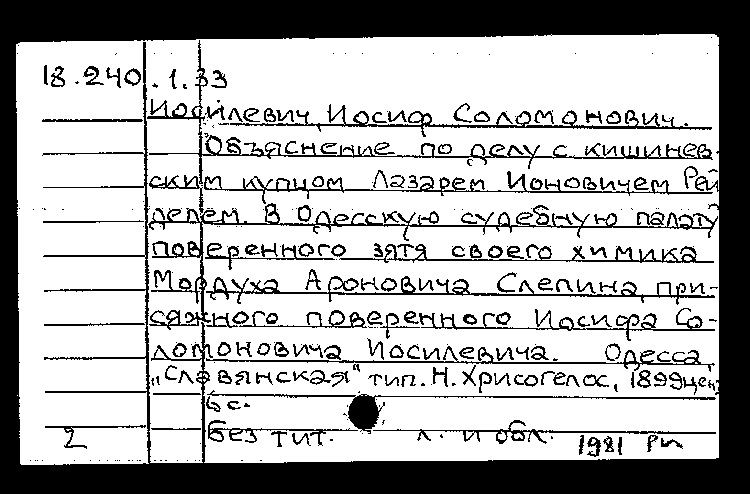 18.240.1.33
Иосилевич, Иосиф Соломонович.
Объяснение по делу с кишинев-
ским купцом Лазарем Ионовичем Рей
делем. В Одесскую судебную палату
поверенного зятя своего химика
Мордуха Ароновича Слепина, при-
сяжного поверенного Иосифа Со-
ломоновича Иосилевича. Одесса,
"Славянская" тип. Н. Хрисогелос, 1899 ценз
6 с.
2 Без тит. л. и обл. 1981